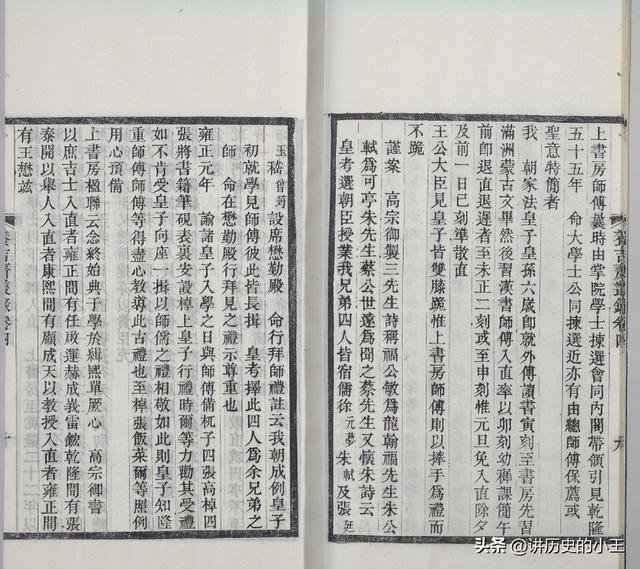 上書房師傅曩時由掌院學士揀選會同内閣帶領引見乾隆
五十五年　命大學士公同揀選近亦有由總師傅保薦或
聖意特簡者
我　朝家法皇子皇孫六歲卽就外傅讀書寅刻至書房先習
滿洲蒙古文畢然後習漢書師傅入直率以卯刻幼穉課簡午
前卽退直退遲者至未正二刻或至申刻惟元旦免入直除夕
及前一日巳刻準散直
王公大臣見皇子皆雙膝跪惟上書房師傅則以捧手爲禮而
不跪
謹案　高宗御製三先生詩稱福公敏爲龍翰福先生朱公
軾爲可亭朱先生蔡公世遠爲聞之蔡先生又懷朱詩云
皇考選朝臣授業我兄弟四人皆宿儒徐元夢朱軾及張廷
養吉齋叢錄卷四
玉嵇曾筠設席懋勤殿　命行拜師禮註云我朝成例皇子
初就學見師傅彼此皆長揖　皇考擇此四人爲余兄弟之
師　命在懋勤殿行拜見之禮示尊重也
雍正元年　諭諸皇子入學之日與師傅備杌子四張高棹四
張將書籍筆硯表裏安設棹上皇子行禮時爾等力勸其受禮
如不肯受皇子向座一揖以師儒之禮相敬如此則皇子知隆
重師傅師傅等得盡心教導此古禮也至棹張飯菜爾等照例
用心預備
上書房楹聯云念終始典于學於緝熙單厥心　高宗御書
以庶吉士入直者雍正間有任啟運赫成峩雷鋐乾隆間有張
泰開以舉人入直者康熙間有顧成天以教授入直者雍正間
有王懋竑
養吉齋叢錄卷四
头条 @讲历史的小王